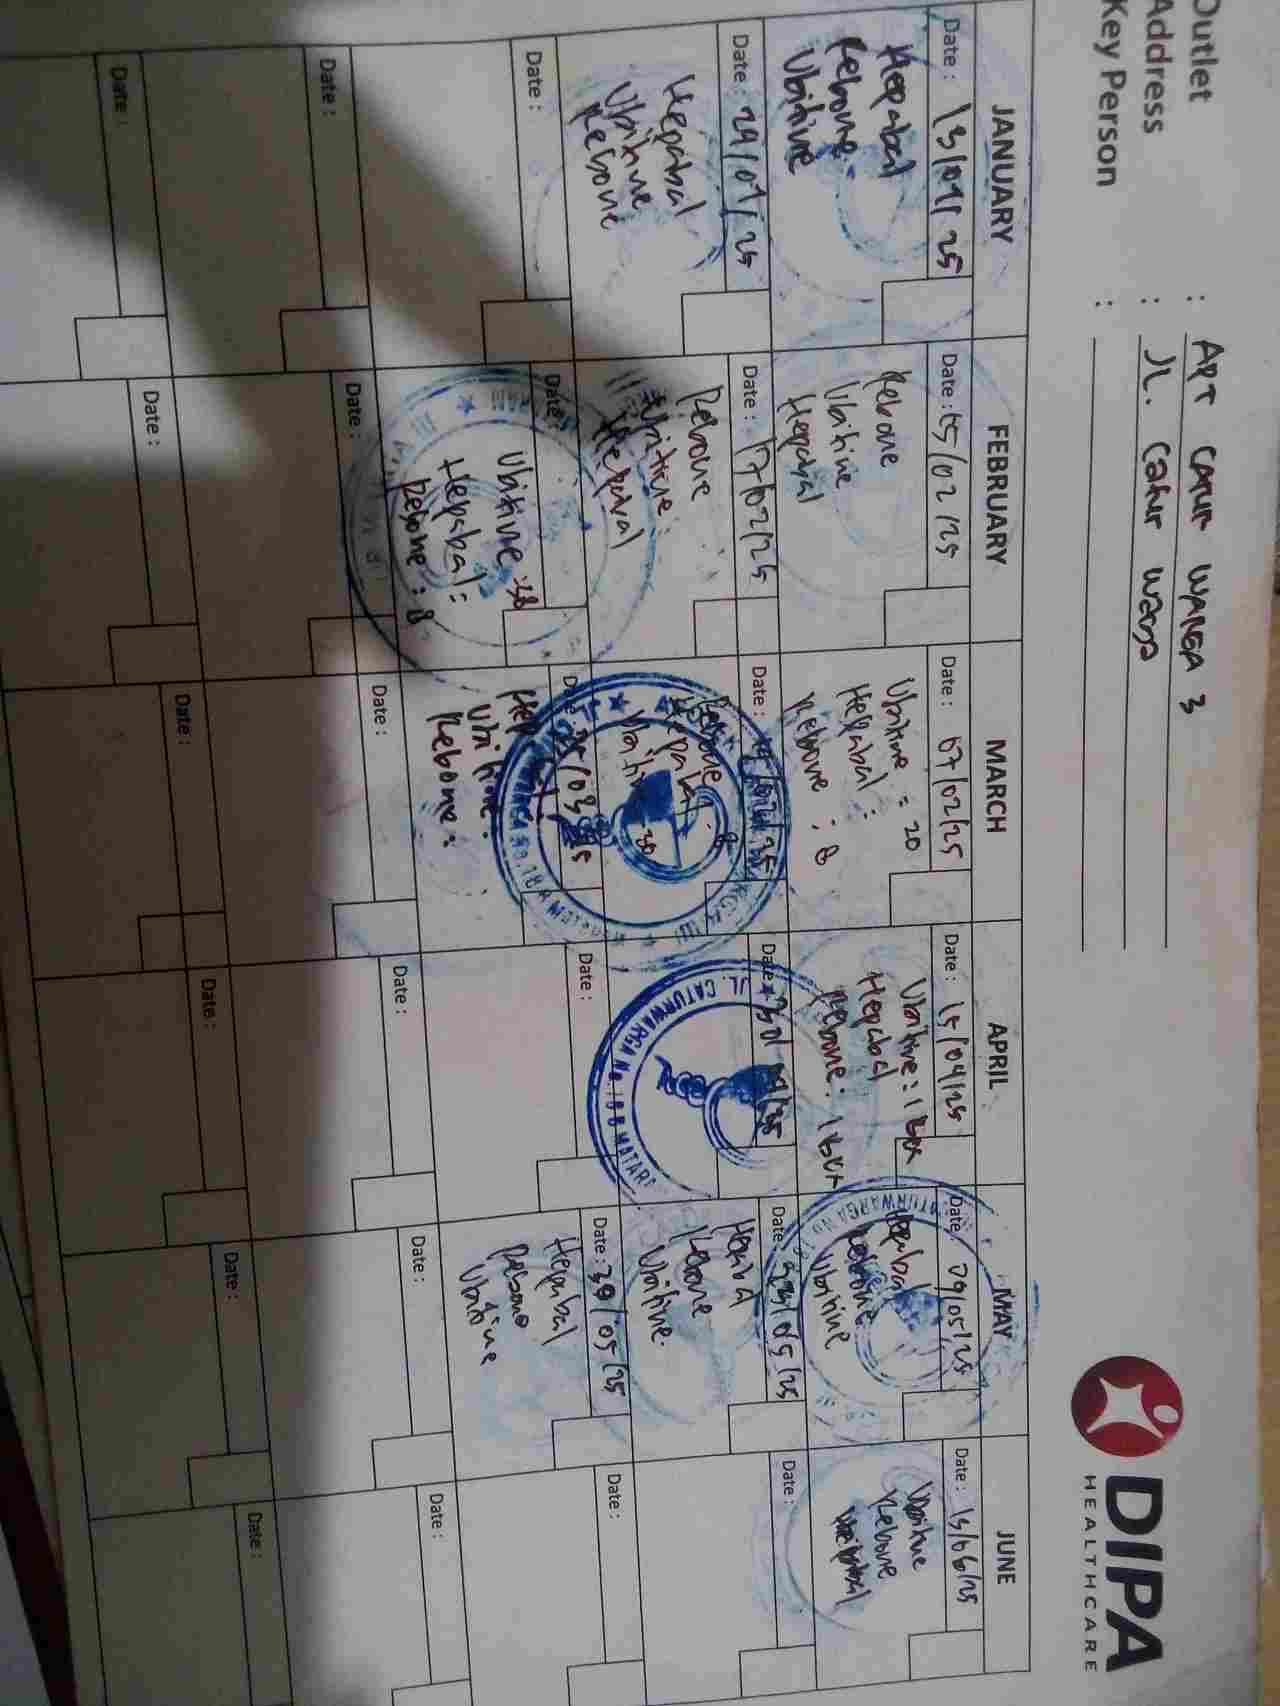 Outlet : APT CATUR WARGA 3
Address : JL. Catur Warga
Key Person :
DIPA
HEALTHCARE
JANUARY
Date : 13/01/25
Hepabal
Rebone
Ubitine
Date : 29/01/25
Hepabal
Ubitine
Rebone
Date :
Date :
Date :
FEBRUARY
Date : 05/02/25
Rebone
Ubitine
Hepabal
Date : 17/02/25
Rebone :
Ubitine :
Hepabal
Date :
Ubitine :
Hepabal :
Rebone : 8
Date :
Date :
MARCH
Date : 07/02/25
Ubitine = 20
Hepabal :
Rebone : 8
Date :
Rebone : 8
Hepabal :
Ubitine 30
Date : 25/03/25
Hepabal :
Ubitine :
Rebone :
Date :
Date :
APRIL
Date : 15/04/25
Ubitine : 1 box
Hepabal
Rebone : 1 box
Date :
JL. CATURWARGA No. 18 B MATARA
Date :
Date :
Date :
MAY
Date : 09/05/25
Hepabal
Rebone
Ubitine
Date : 23/05/25
Hepabal
Rebone
Ubitine
Date : 30/05/25
Hepabal
Rebone
Ubitine
Date :
Date :
JUNE
Date : 15/06/25
Ubitine
Rebone
Hepabal
Date :
Date :
Date :
Date :